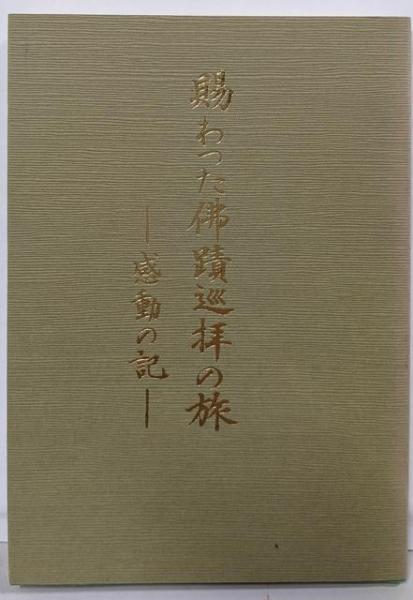 賜わった佛蹟巡拝の旅
―感動の記―